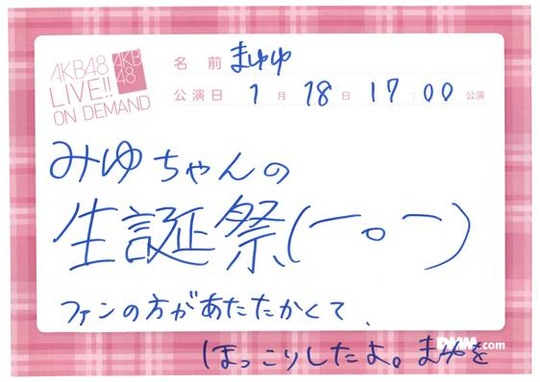 AKB48
LIVE!!
ON DEMAND
AKB
48
名前 まゆゆ
公演日 1月18日 17:00 公演
みゆちゃんの
生誕祭(ー。ー)
ファンの方があたたかくて、
ほっこりしたよ。まゆを
.com